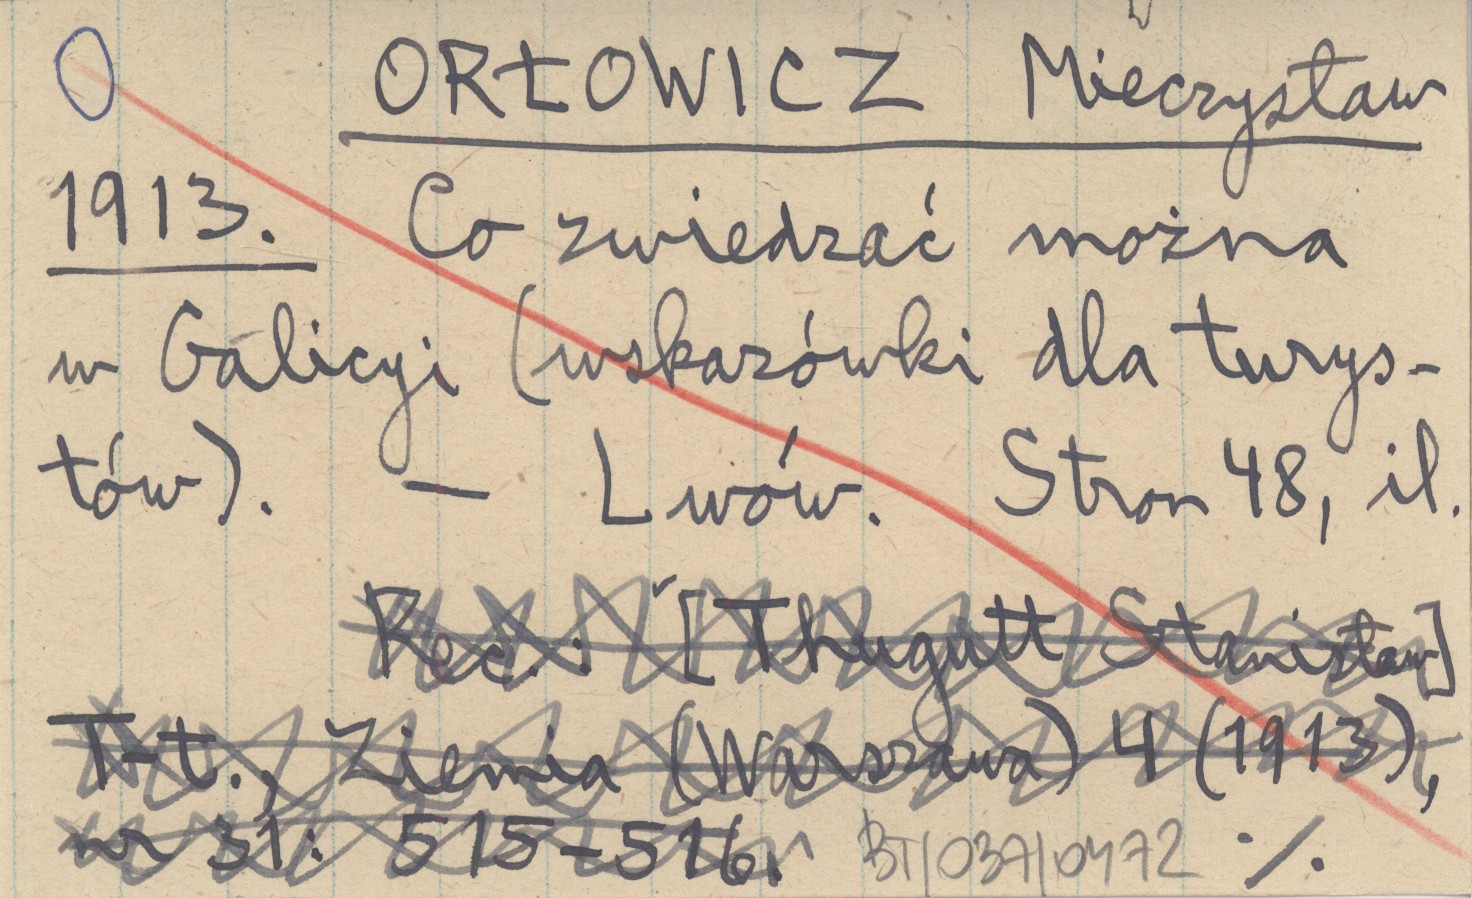 O ORŁOWICZ Mieczysław
1913. Co zwiedzać można
w Galicyi (wskazówki dla turys-
tów). — Lwów. Stron 48, il.
Rec.: [Thugutt Stanisław]
T-t., Ziemia (Warszawa) 4 (1913),
nr 31: 515-516.
BT/037/0472 ./.